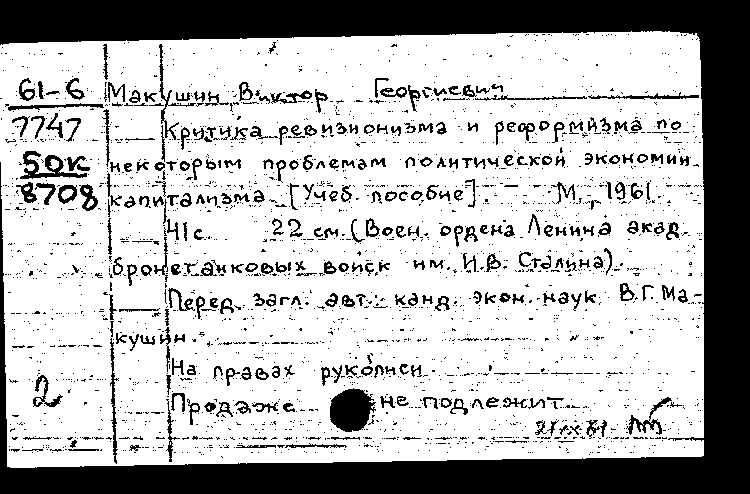 61-6 Макушин Виктор Георгиевич
7747 Критика ревизионизма и реформизма по
50к некоторым проблемам политической экономии
8708 капитализма. [Учеб. пособие]. М., 1961.
41с. 22 см. (Воен. ордена Ленина акад.
бронетанковых войск им. И.В. Сталина).
Перед загл. авт.: канд. экон. наук В.Г. Ма-
кушин.
На правах рукописи.
2 Продаже не подлежит.